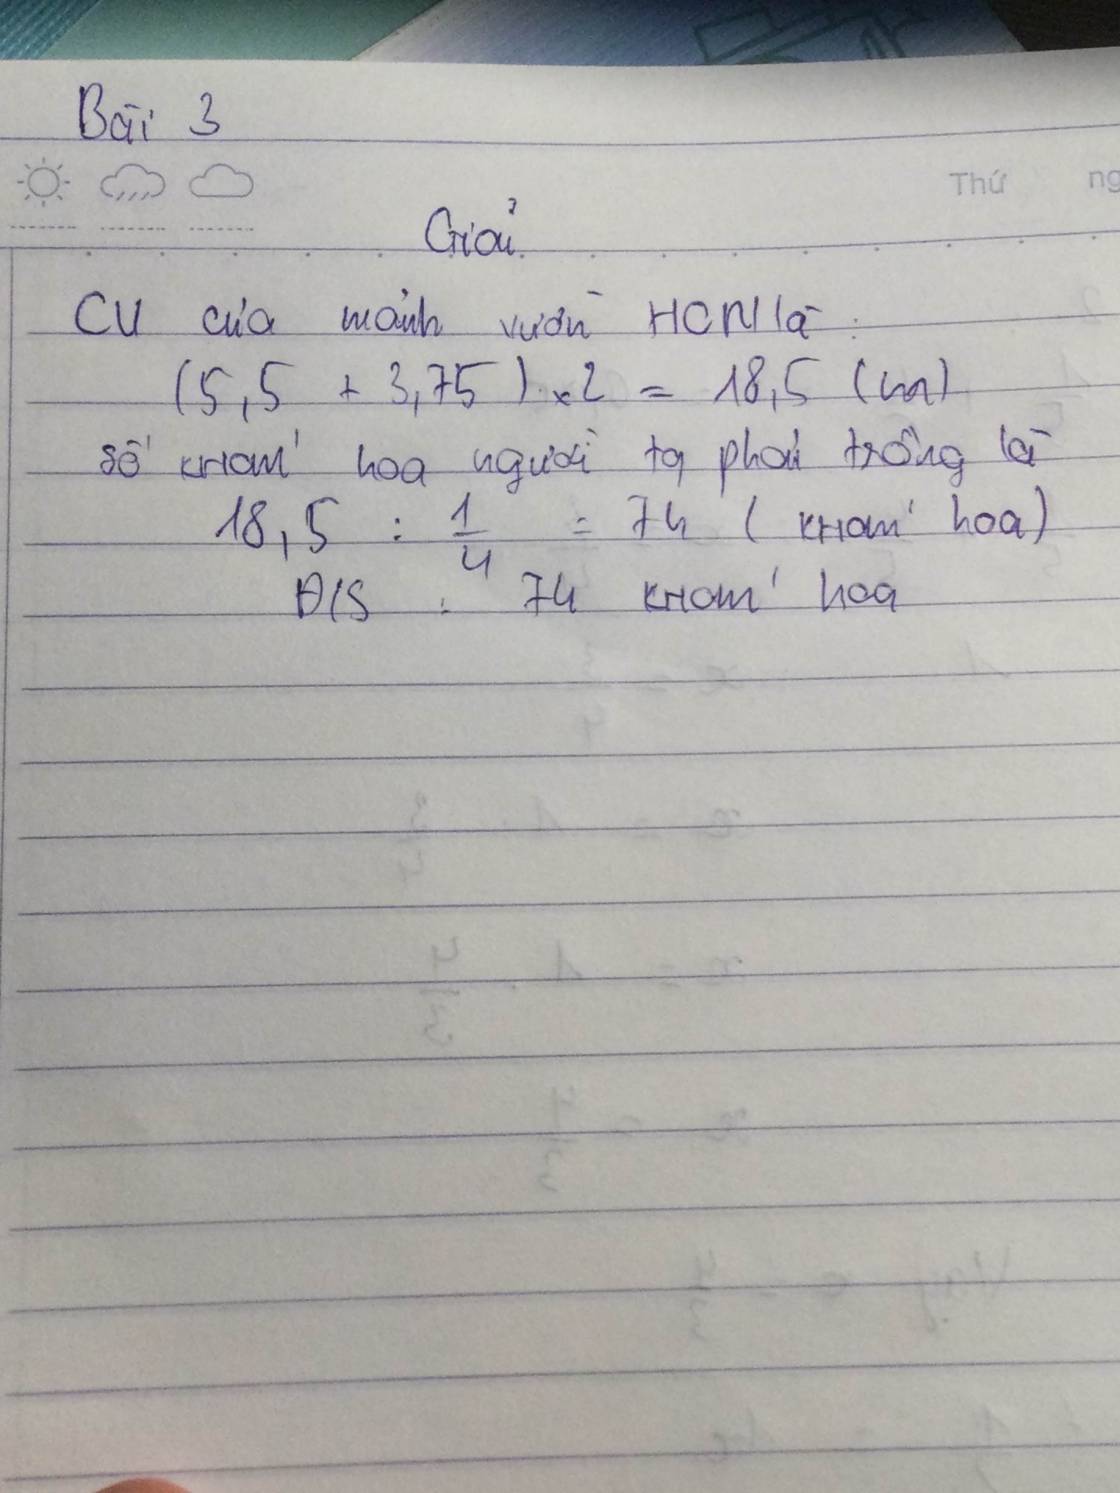 Bài 3
Thứ ng
Giải
CV của mảnh vườn HCN là :
(5,5 + 3,75) x 2 = 18,5 (m)
số khóm hoa người ta phải trồng là
18,5 : 1/4 = 74 ( khóm hoa)
Đ/S : 74 khóm hoa